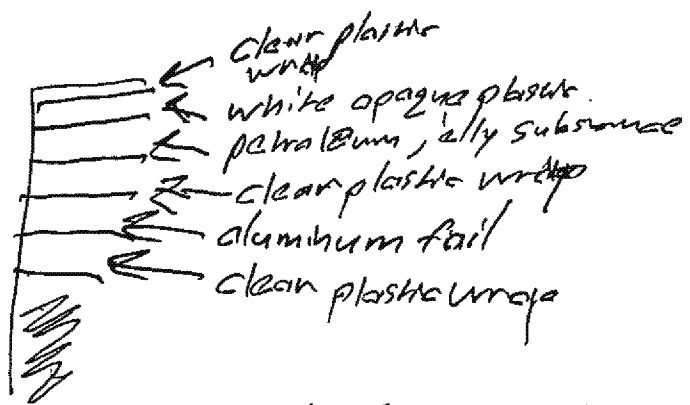 clear plastic
wrap
white opaque plastic.
petroleum jelly substance
clear plastic wrap
aluminum foil
clear plastic wrap